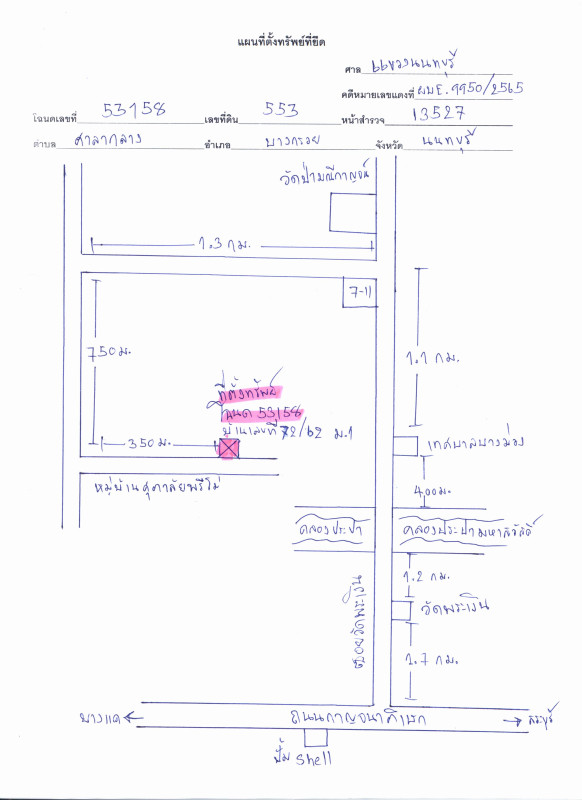 แผนที่ตั้งทรัพย์ที่ยึด
ศาล แขวงนนทบุรี
คดีหมายเลขแดงที่ ผบE.9950/2565
โฉนดเลขที่ 53158 เลขที่ดิน 553 หน้าสำรวจ 13527
ตำบล ศาลากลาง อำเภอ บางกรวย จังหวัด นนทบุรี
วัดป่ามณีกาญจน์
1.3 กม.
7-11
750 ม.
1.1 กม.
ที่ตั้งทรัพย์
โฉนด 53158
บ้านเลขที่ 72/62 ม.1
350 ม.
เทศบาลบางม่วง
หมู่บ้านศุภาลัยพรีโม่
400 ม.
คลองประปา
คลองประปามหาสวัสดิ์
1.2 กม.
วัดพระเงิน
ซอยวัดพระเงิน
1.7 กม.
บางแค
ถนนกาญจนาภิเษก
สระบุรี
ปั๊ม Shell